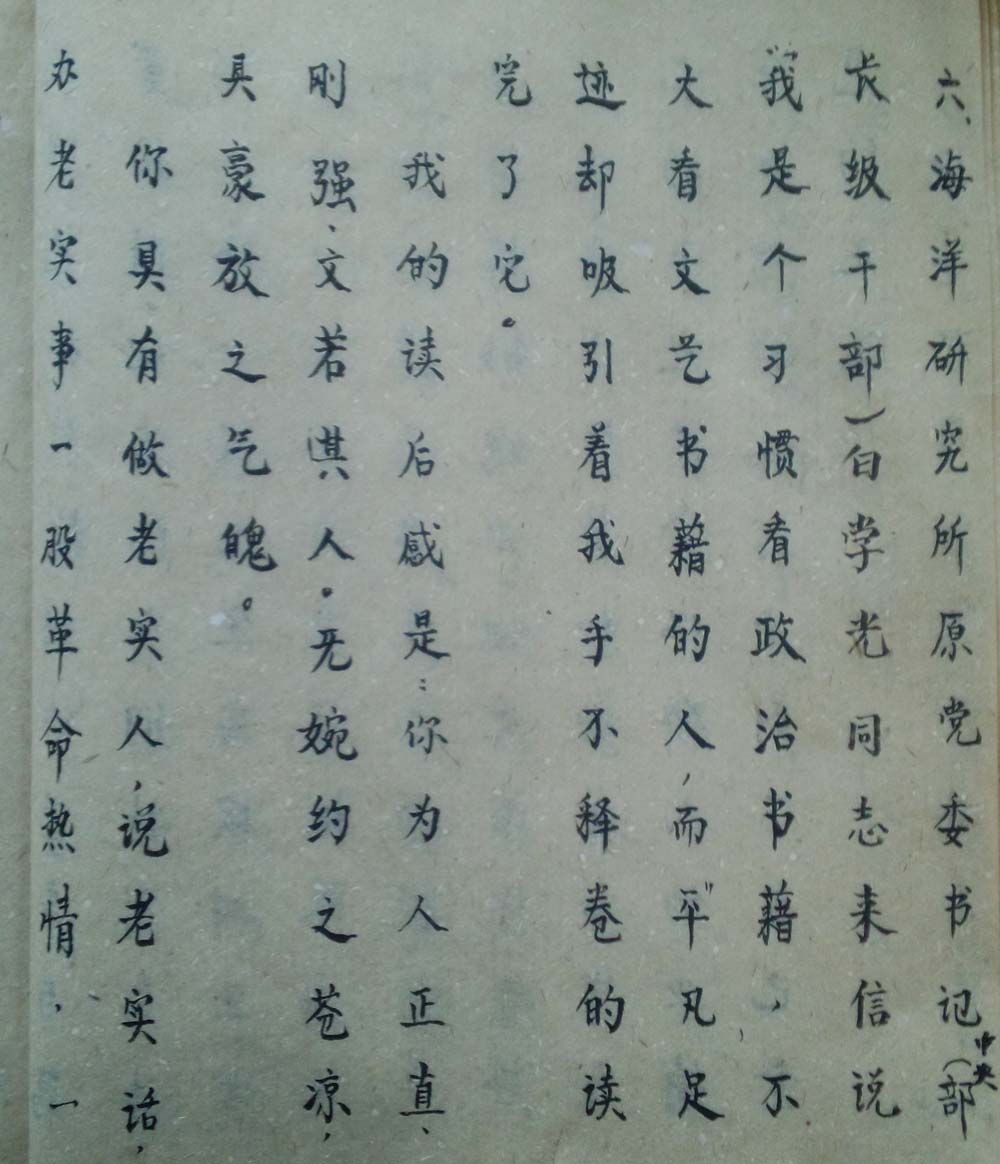 六、海洋研究所原党委书记(中央部
长级干部)白学光同志来信说
“我是个习惯看政治书藉，不
大看文艺书藉的人，而“平凡足
迹却吸引着我手不释卷的读
完了它。
我的读后感是：你为人正直、
刚强、文若淇人。无婉约之苍凉，
具豪放之气魄。
你具有做老实人，说老实话，
办老实事一股革命热情，一